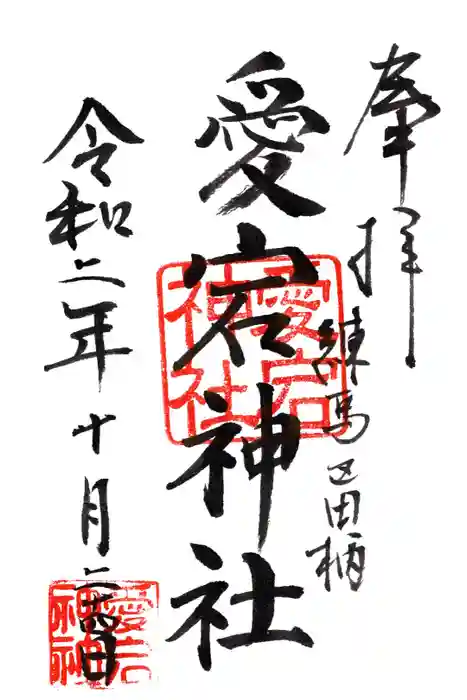 奉拝
練馬区田柄
愛宕神社
愛宕
神社
令和二年十月二十四日
愛宕
神社